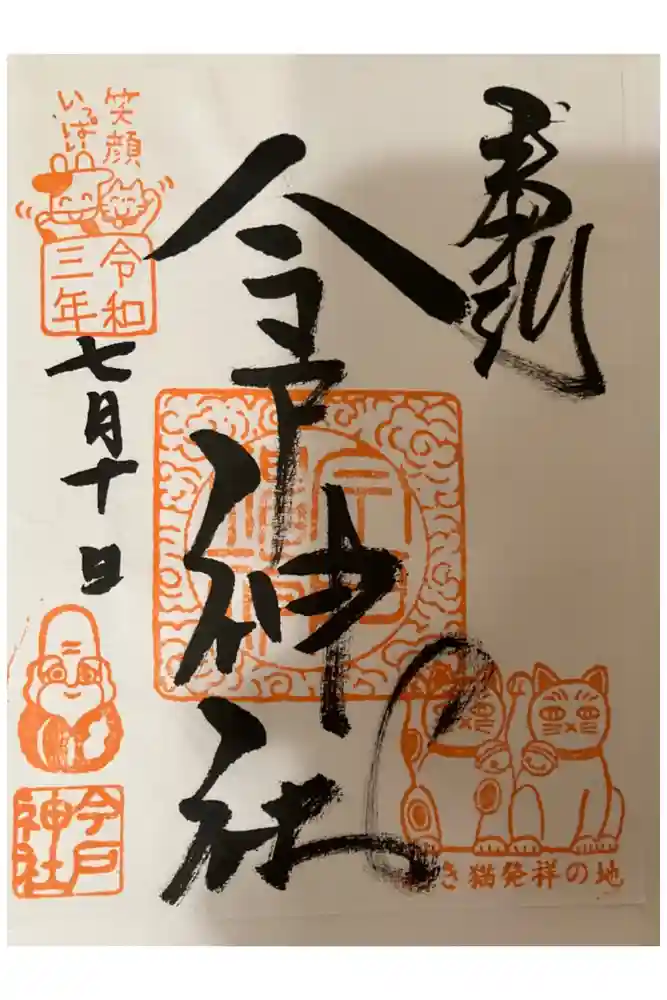 奉拝
今戸神社
き猫発祥の地
笑顔
いっぱい
令和
三年
七月十日
今戸
神社